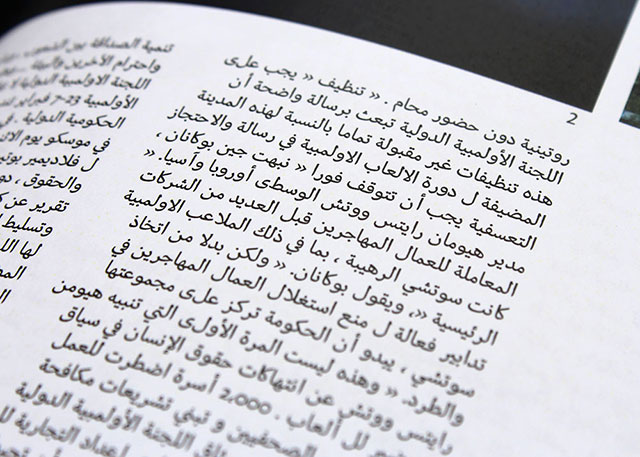 2
روتينية دون حضور محام . « تنظيف » يجب على
اللجنة الأولمبية الدولية تبعث برسالة واضحة أن
هذه تنظيفات غير مقبولة تماما بالنسبة لهذه المدينة
المضيفة ل دورة الالعاب الاولمبية في رسالة والاحتجاز
التعسفية يجب أن تتوقف فورا « نبهت جين بوكانان ,
مدير هيومان رايتس ووتش الوسطى أوروبا وآسيا. »
المعاملة للعمال المهاجرين قبل العديد من الشركات
كانت سوتشي الرهيبة , بما في ذلك الملاعب الاولمبية
الرئيسية », ويقول بوكانان. « ولكن بدلا من اتخاذ
تدابير فعالة ل منع استغلال العمال المهاجرين في
سوتشي , يبدو أن الحكومة تركز على مجموعتها
والطرد. » وهذه ليست المرة الأولى التي تنبيه هيومن
رايتس ووتش عن انتهاكات حقوق الإنسان في سياق
لل ألعاب . 2,000 أسرة اضطرت للعمل
الصحفيين و تبني تشريعات مكافحة
اللجنة الأولمبية الدولية
التجارية
تنمية الصداقة بين
واحترام الآخرين والبيئة
اللجنة الاولمبية الدولية
الأولمبية 7-23 فبراير
الحكومية الدولية .
في موسكو يوم
ل فلاديمير
والحقوق , دو
تقرير عن
وتسليط
لها